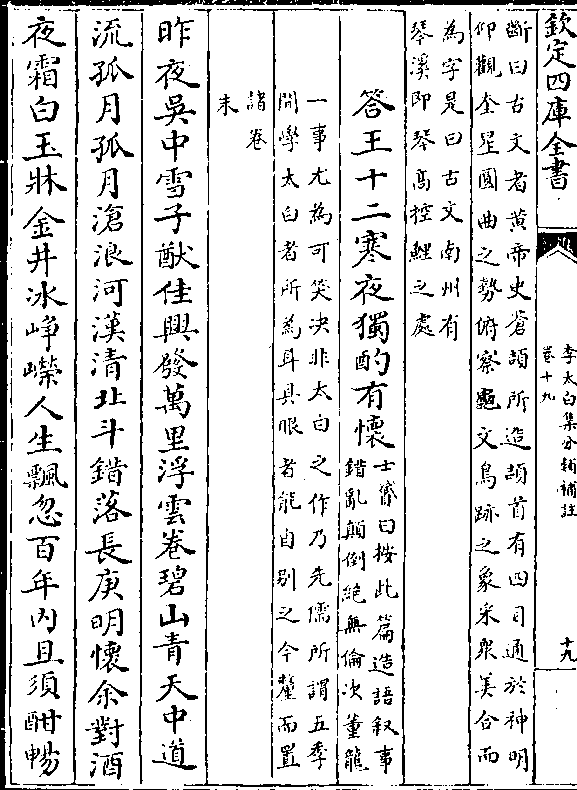 欽定四庫全書
李太白集分類補註
卷十九
十九
斷曰古文者黄帝史蒼頡所造頡首有四目通於神明
仰觀奎星圓曲之勢俯察龜文鳥跡之象采衆美合而
為字是曰古文南州有
琴溪即琴高控鯉之處
答王十二寒夜獨酌有懷
士贇曰按此篇造語叙事
錯亂顛倒絶無倫次董龍
一事尤為可笑决非太白之作乃先儒所謂五季
間學太白者所為耳具眼者能自别之今釐而置
諸卷
末
昨夜吳中雪子猷佳興發萬里浮雲卷碧山青天中道
流孤月孤月滄浪河漢清北斗錯落長庚明懷余對酒
夜霜白玉牀金井冰崢嶸人生飄忽百年内且須酣暢